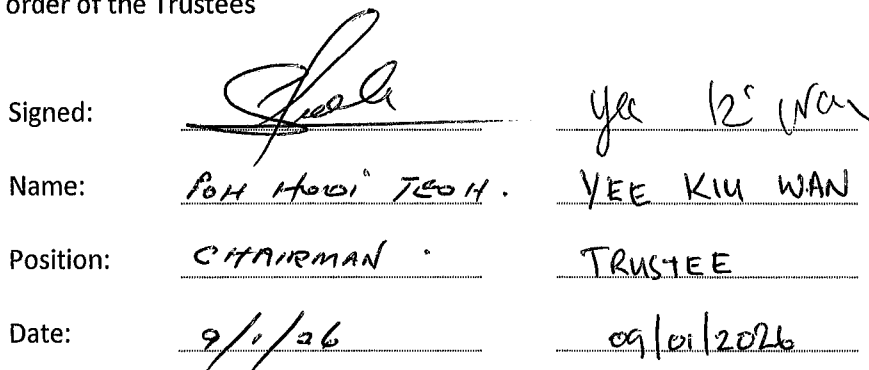 order of the Trustees
Signed: Yee
Name: POH TEOH. YEE KIU WAN
Position: CHAIRMAN. TRUSTEE
Date: 9/1/26 09/01/2026